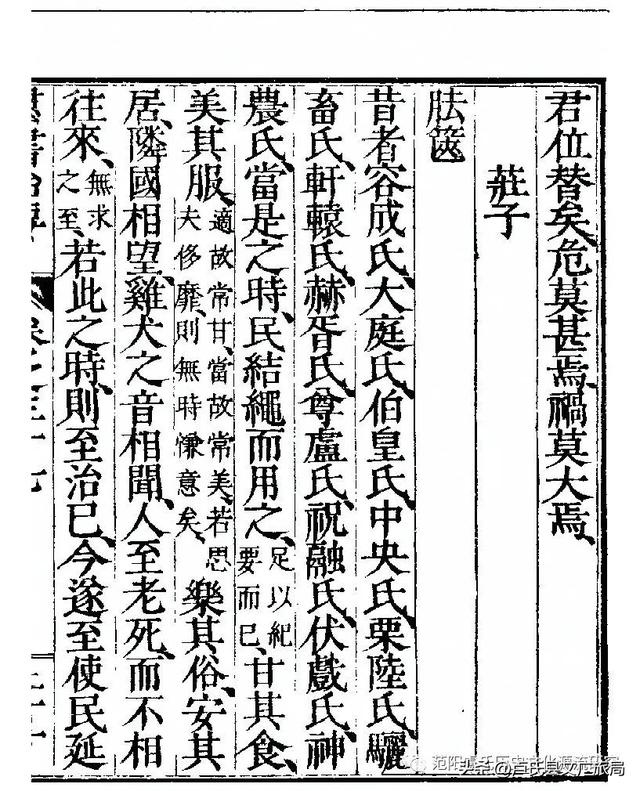 君位替矣、危莫甚焉、禍莫大焉、
莊子
胠篋
昔者容成氏、大庭氏、伯皇氏、中央氏、栗陸氏、驪
畜氏、軒轅氏、赫胥氏、尊盧氏、祝融氏、伏戲氏、神
農氏、當是之時、民結繩而用之、足以紀要而已、甘其食、
美其服、適故常甘、當故常美、若思夫侈靡、則無時慊意矣、樂其俗、安其
居、隣國相望、雞犬之音相聞、人至老死、而不相
往來、無求之至、若此之時、則至治已、今遂至使民延